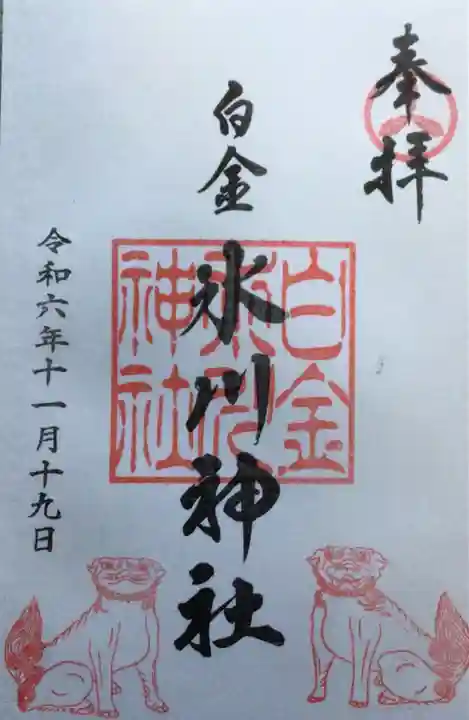 奉拝
白金
氷川神社
白金
氷川
神社
令和六年十一月十九日